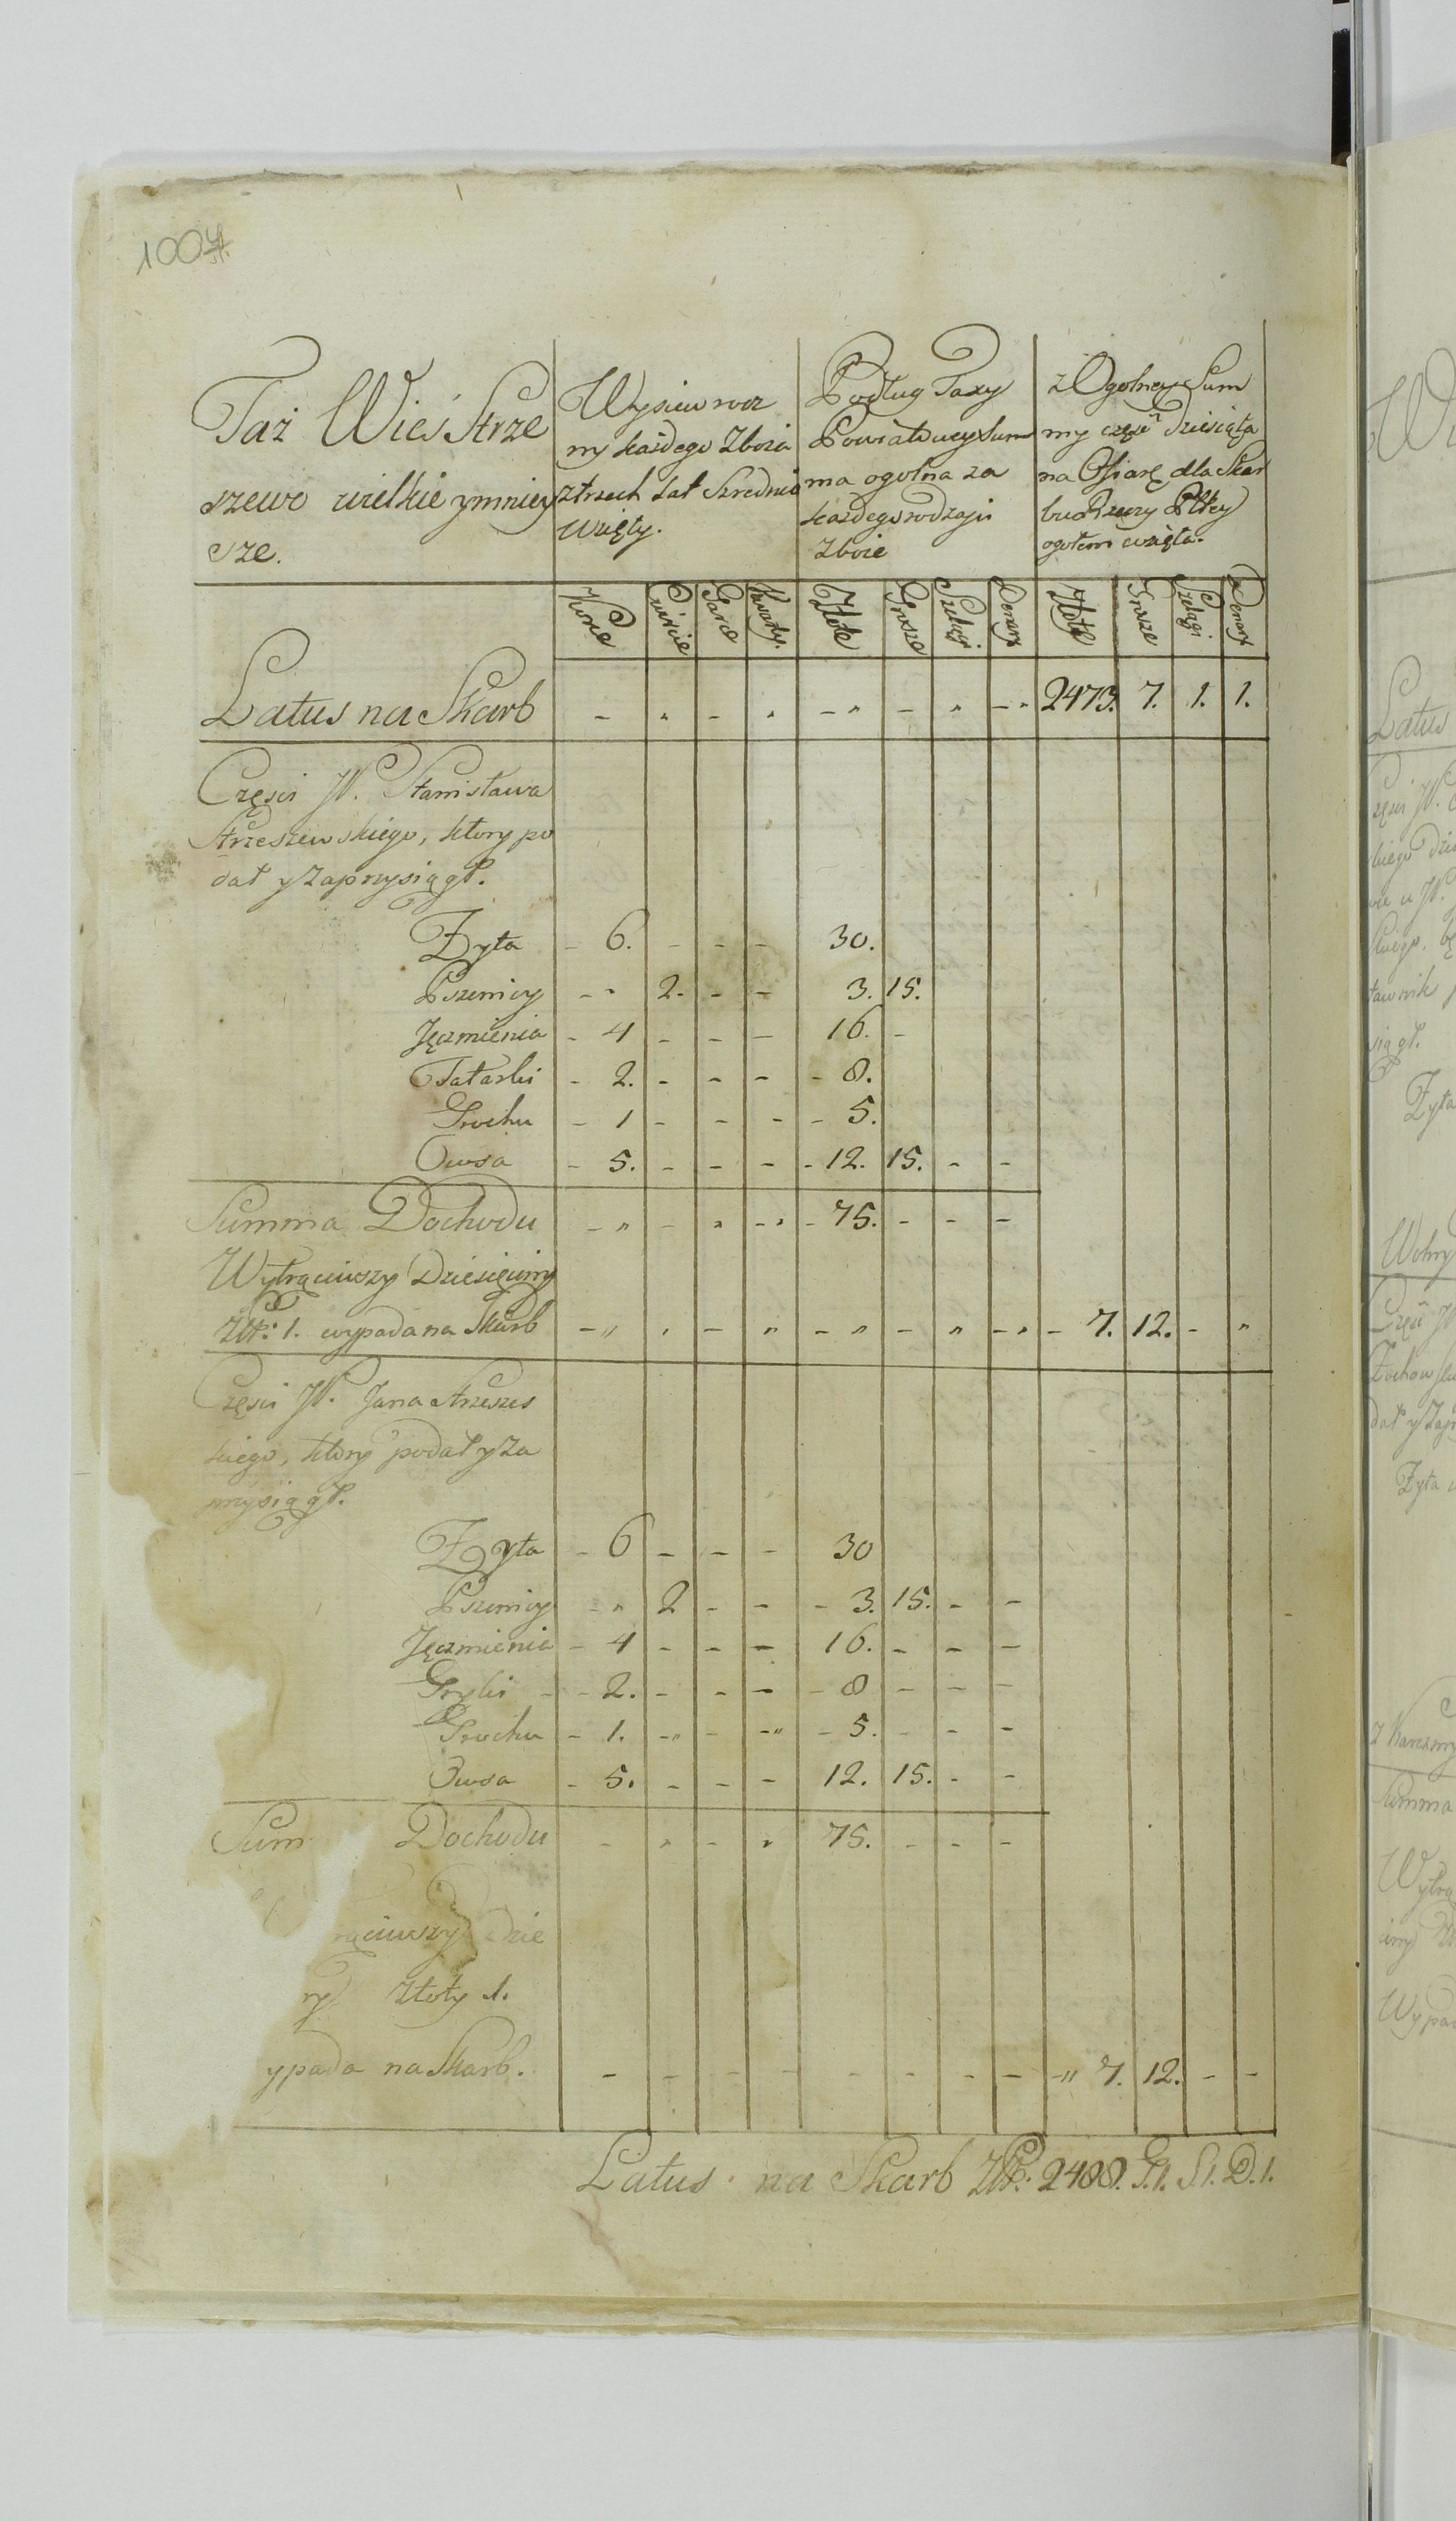 1004
Taż Wieś Strze
szewo wielkie y mniey
sze.
Wysiew rocz
ny każdego Zboża
z trzech lat srednio
wzięty.
Podług Taxy
Powiatowey Sum
ma ogolna za
każdego rodzaju
Zboże
z Ogolney Sum
my część dziesiąta
na Ofiarę dla Skar
bu Rzeczy Pltey
ogołem wzięta.
Korce Cwiercie Garce Kwarty. Złote Grosze Szelągi Denary Złote Grosze Szelągi Denary
Latus na Skarb - " - " - " - " - " 2473. 7. 1. 1.
Części JP. Stanisława
Strzeszewskiego, ktory po
dał y zaprzysiągł.
Żyta - 6. - - - 30.
Pszenicy - " 2. - - 3. 15.
Jęczmienia - 4 - - - 16. -
Tatarki - 2. - - - - 8.
Grochu - 1 - - - - 5.
Owsa - 5. - - - - 12. 15. - -
Summa Dochodu - " - " - " - 75. - - -
Wytrąciwszy Dziesięciny
Złł: 1. wypada na Skarb - " " - " - " - " - " - 7. 12. - "
Części JP. Jana Strzeszes
kiego, ktory podał y za
przysiągł.
Żyta - 6 - - - 30
Pszenicy - " 2 - - - 3. 15. - -
Jęczmienia - 4 - - - 16. - - -
Gryki - - 2. - - - - 8 - - -
Grochu - 1. - " - - " - 5. - - -
Owsa - 5. - - - 12. 15. - -
Sum Dochodu - " - " 75. - - -
rąciwszy Dzie
ny złoty 1.
ypada na Skarb. - - - - - - - - - " 7. 12. - -
Latus na Skarb Złł: 2488. G.1. S.1. D.1.